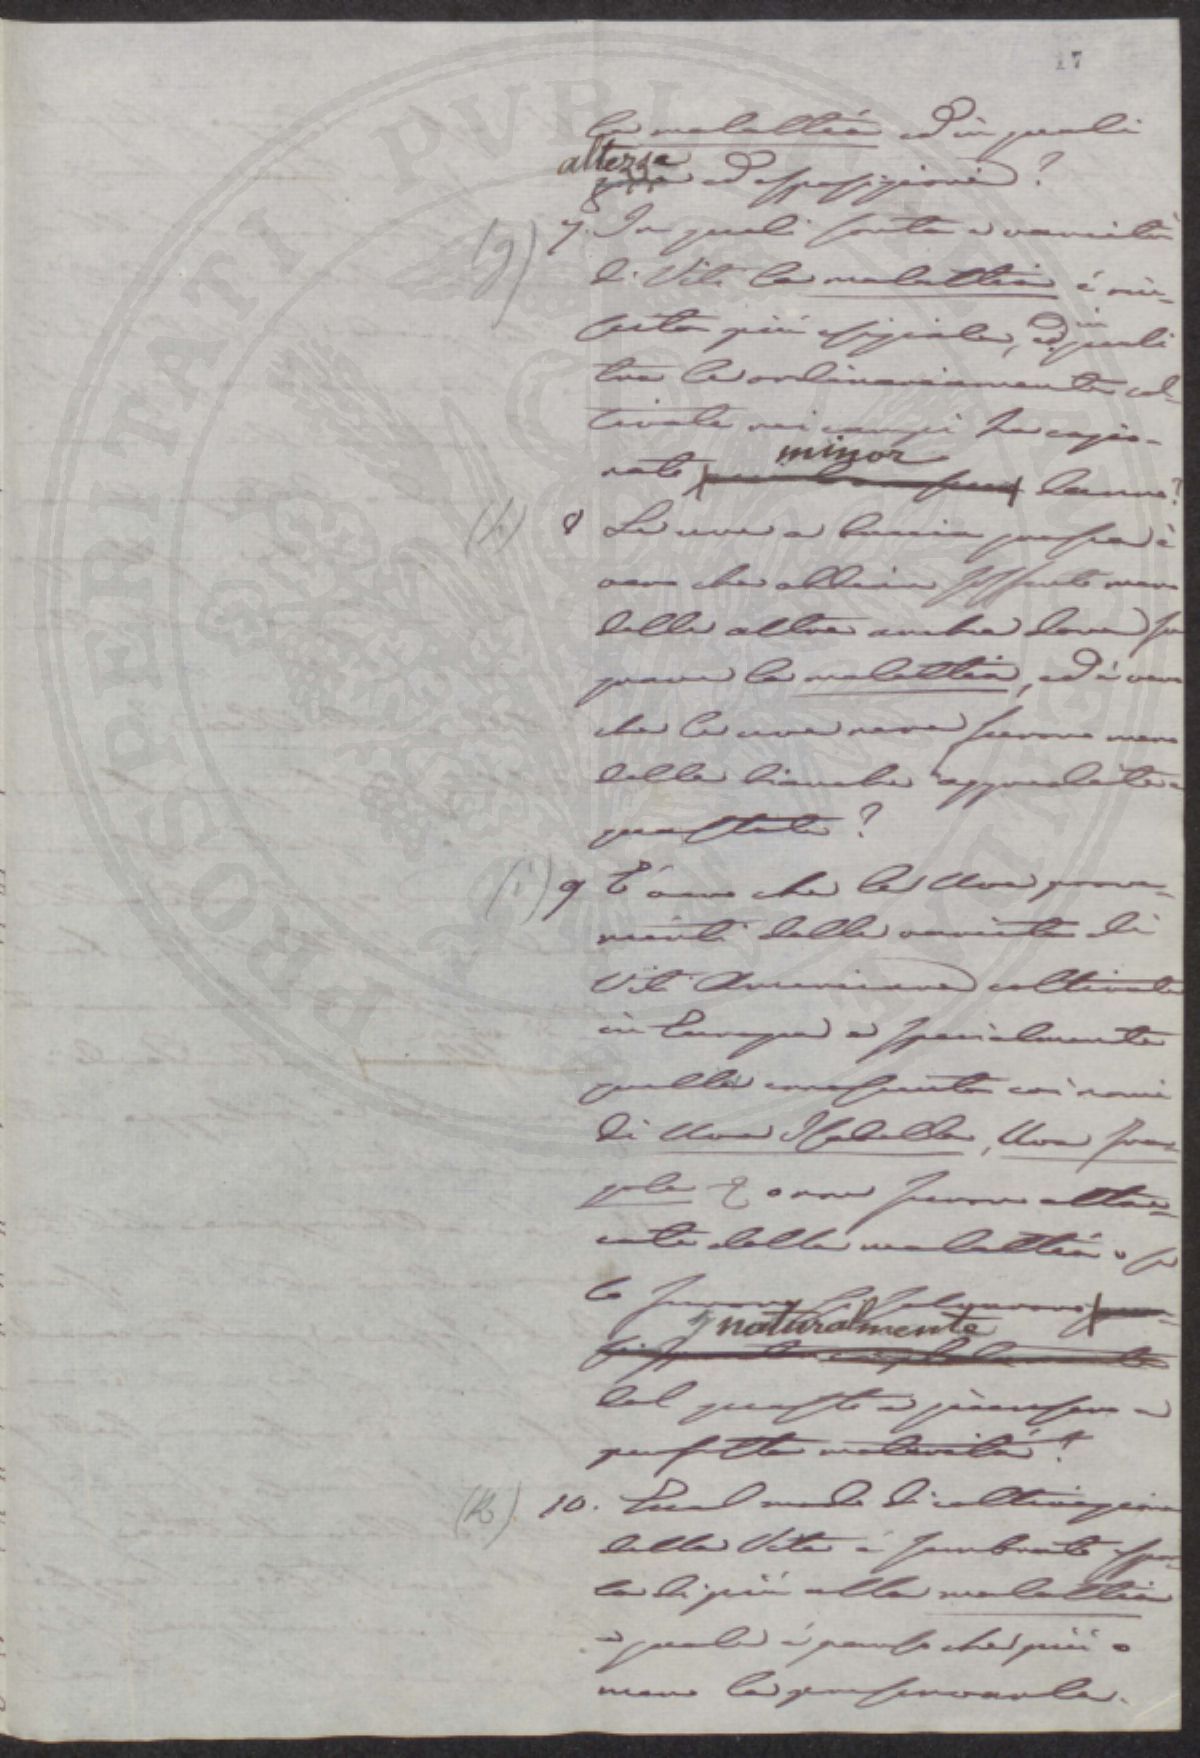 17
la malattia ed in quali
altezze
ed esposizioni?
(g) 7. In quali sorta e varietà
di Viti la malattia è riu-
scita più esiziale, ed in quali
tra le ordinariamente col-
tivate nei campi ha cagio-
nato minor danno?
(h) 8 Le uve a buccia grossa è
vero che abbiano sofferto meno
delle altre anche dove fu
grave la malattia, ed è vero
che le uve nere furono meno
delle bianche appredilette a
questa?
(i) 9 È vero che le Uve prove-
nienti dalle varietà di
Viti Americane coltivate
in Europa e specialmente
quelle conosciute coi nomi
di Uva Isabella, Uva Fra-
gola & o non furono attac-
cate dalla malattia o se
lo furono si salvarono
naturalmente
dal guasto e giunsero a
perfetta maturità?
(k) 10. Qual modo di coltivazione
della Vite è sembrato espor-
la di più alla malattia
e quale è parso che più o
meno la preservasse.
PUBLICAE
PROSPERITATI